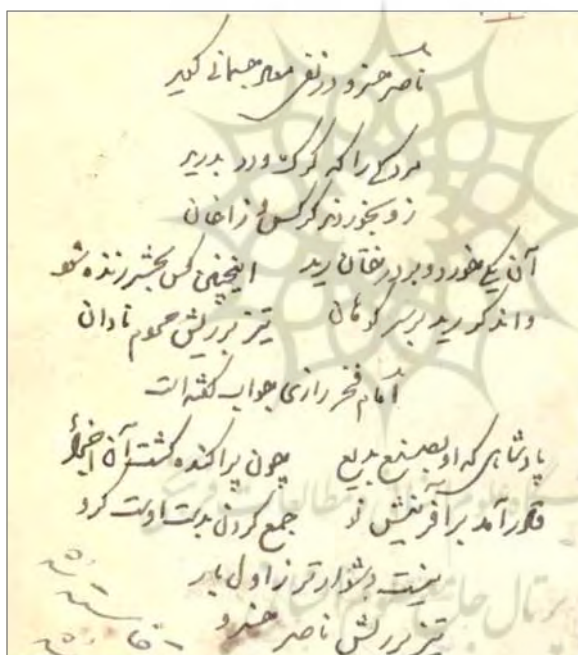 ناصر خسرو در نفی معاد جسمانی گوید
مردکی را که گرگ و دد بدرید
زو بخوردند کرکس و زاغان
آن یکی خورد و بر درختان رید اینچنین کس بحشر زنده شود
واندگر رید بر سر کوهان تیز بر ریش مردم نادان
امام فخر رازی جواب گفته است
پادشاهی که او بصنع بدیع چون پراکنده گشت آن اجزا
قادر آمد بر آفرینش او جمع کردن بدست اوست گرو
نیست دشوارتر ز اول بار
تیز بر ریش ناصر خسرو